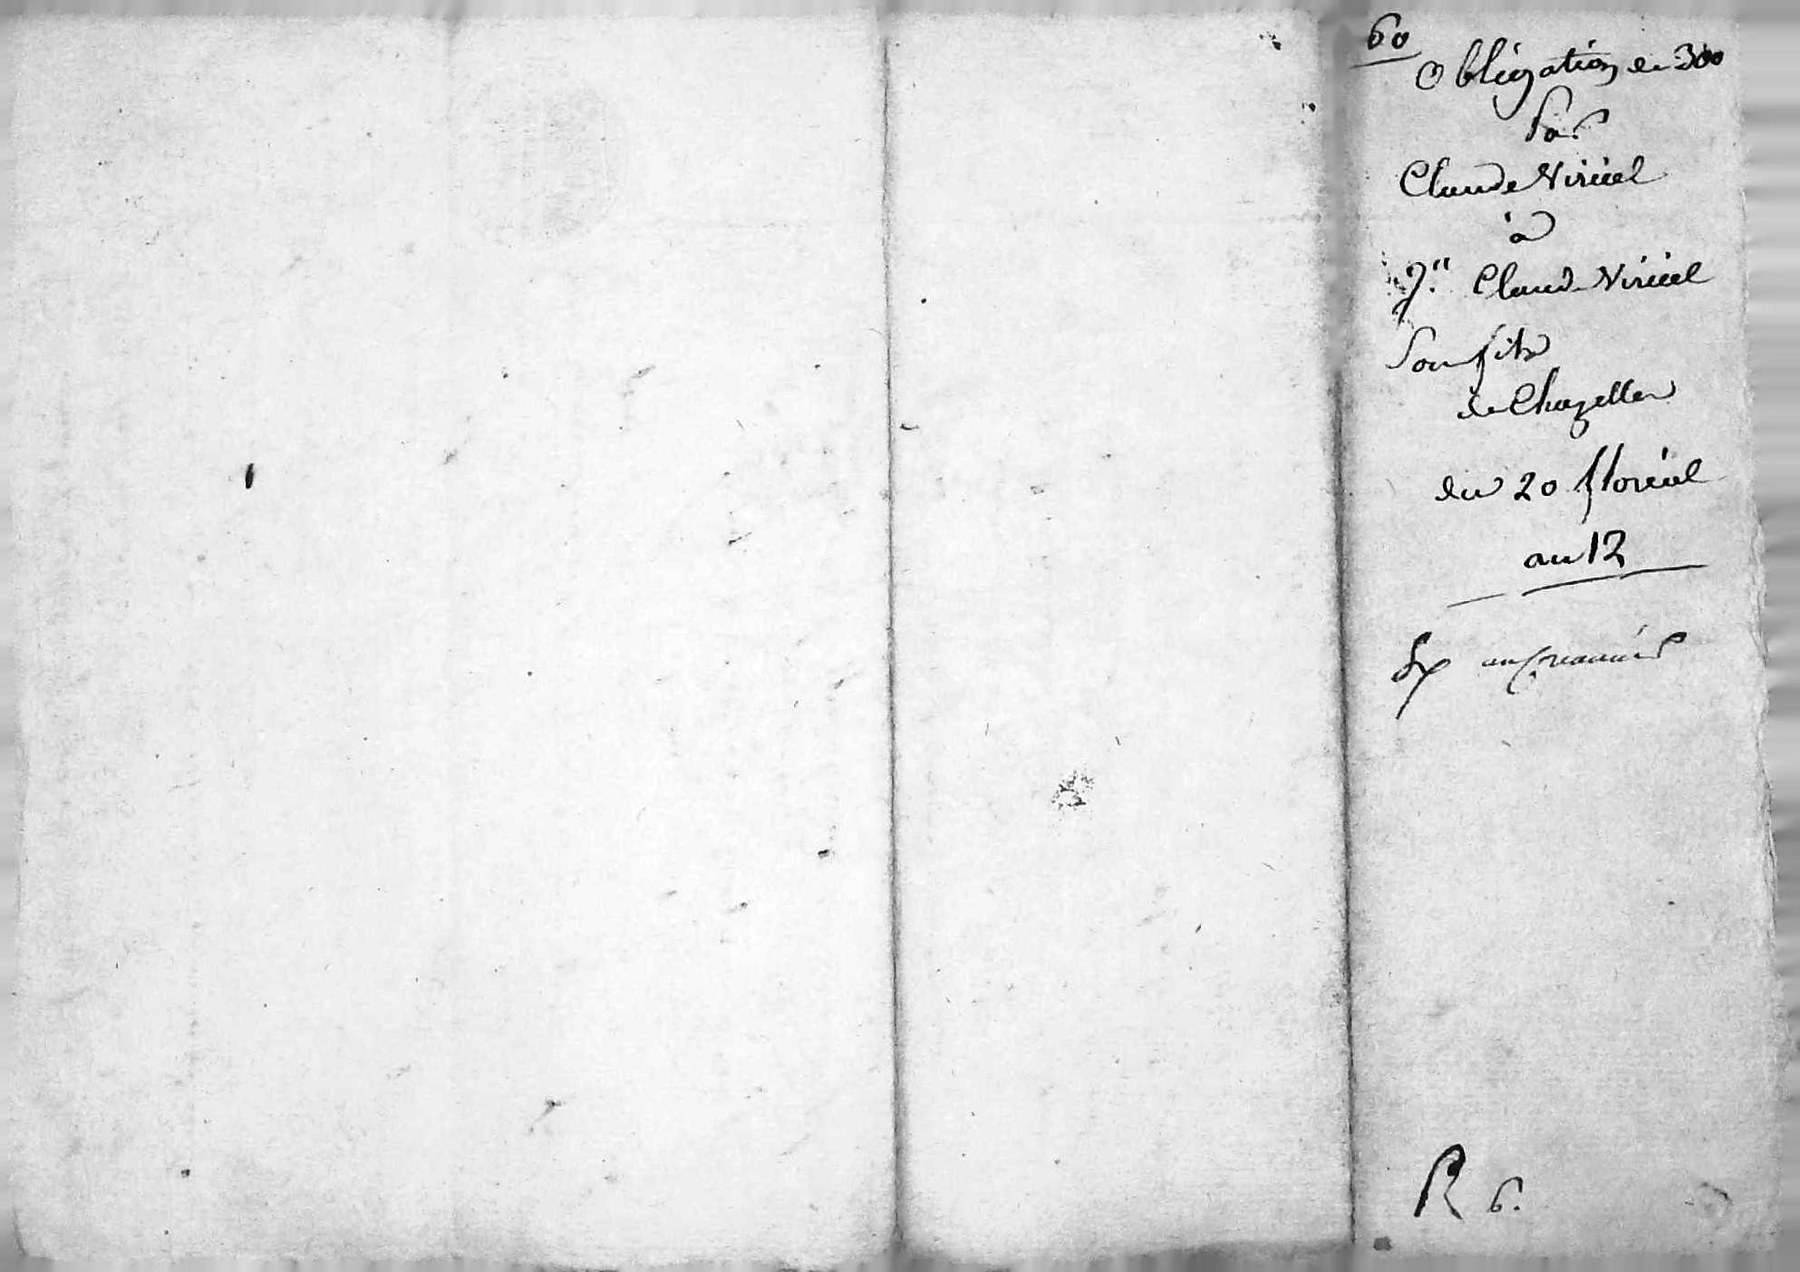 60
Obligation de 300
Par
Claude Viriiel
à
J.n Claude Viriiel
Son fils
de Chazelles
du 20 floréal
an 12
au creancier
R 6.